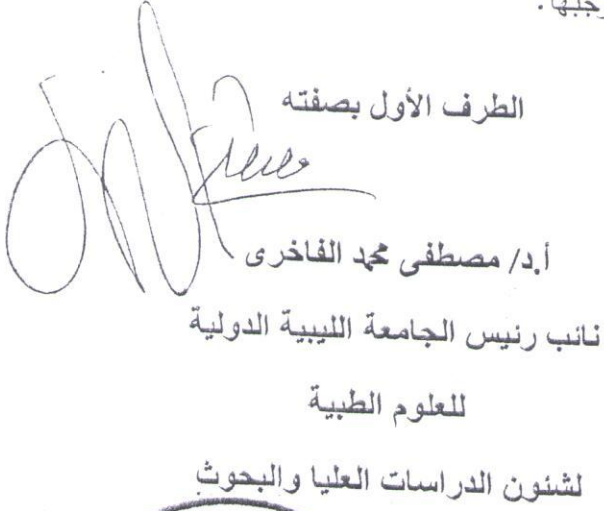 الطرف الأول بصفته
أ.د/ مصطفى محمد الفاخرى
نائب رئيس الجامعة الليبية الدولية
للعلوم الطبية
لشئون الدراسات العليا والبحوث